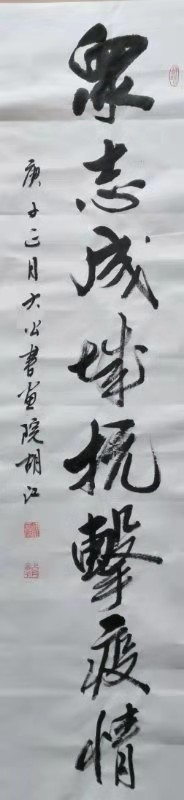 眾志成城抗擊疫情
庚子正月大公書畫院胡江